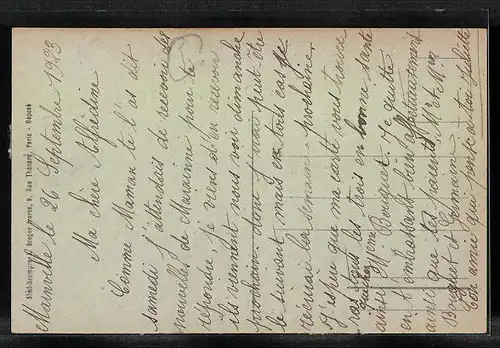 Mainville le 26 Septembre 1923
Ma chère Alfrédine
Comme Maman te l'as dit
samedi j'attendais de recevoir des
nouvelles de Marianne pour te
répondre, je viens d'en recevoir
ils viennent nous voir dimanche
prochain. dont j'irai peut être
le suivant mais en tous cas je
t'écrirai la semaine prochaine.
J'espère que ma carte vous trouve
tous les trois en bonne santé
ainsi Mme Bouquet. Je quitte
en t'embrassant bien affectueusement
ainsi que tes parents, Mr et Mme
Bouquet et Germaine.
Ton amie qui pense à toi Juliette
9, Rue Thénard, Paris